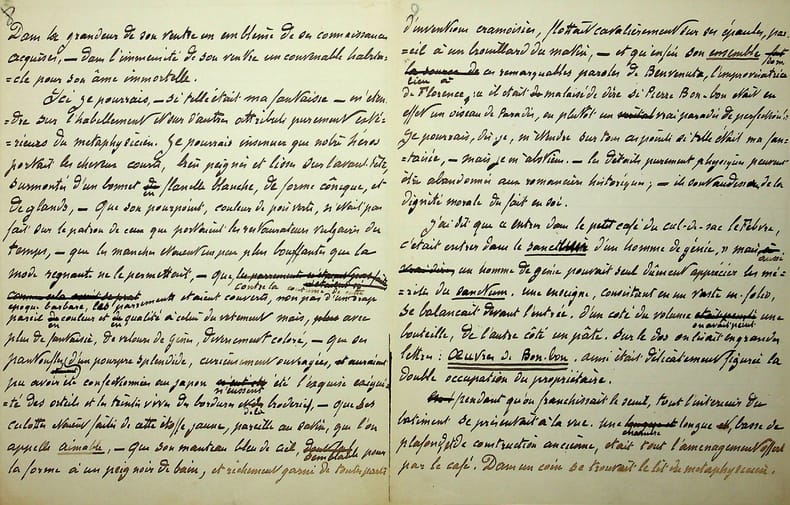 8
Dans la grandeur de son ventre un emblème de ses connaissances
acquises, — dans l'immensité de son ventre un convenable habita-
=cle pour son âme immortelle.
Ici je pourrais, — si telle était ma fantaisie — m'éten-
=dre sur l'habillement et sur d'autres attributs purement exté-
=rieurs du metaphysicien. Je pourrais insinuer que notre héros
portait les cheveux courts, bien peignés et lisses sur l'avant-tête,
surmontés d'un bonnet en flanelle blanche, de forme cônique, et
de glands, — que son pourpoint, couleur de pois verts, n'était pas
fait sur le patron de ceux que portaient les restaurateurs vulgaires du
temps, — que les manches étaient un peu plus bouffantes que la
mode regnante ne le permettait, — que,
contre la coutume de cette
époque barbare, les parrements étaient couverts, non pas d'un drap
pareil de couleur et de qualité à celui du vêtement mais, avec
plus de fantaisie, de velours de Gênes, diversement coloré, — que ses
pantoufles d'un pourpre splendide, curieusement ouvragées, auraient
pu avoir été confectionnées au Japon n'eussent été l'exquise exigui-
=té des orteils et la teinte vive des bordures et des broderies, — que ses
culottes étaient faites de cette étoffe jaune, pareille au satin, que l'on
appelle aimable, — que son manteau bleu de ciel, semblable pour
la forme à un peignoir de bain, et richement garni de toutes parts
d'inventions cramoisies, flottait cavalièrement sur ses épaules, pa-
=reil à un brouillard du matin, — et qu'enfin son ensemble
donna lieu à ces remarquables paroles de Benvenuta, l'improvisatrice
de Florence, « il était malaisé de dire si Pierre Bon-bon était en
effet un oiseau de Paradis, ou plutôt un vrai paradis de perfections »
Je pourrais, dis je, m'étendre sur tous ces points si telle était ma fan-
=taisie, — mais je m'abstiens. — les détails purement physiques peuvent
être abandonnés aux romanciers historiques; — ils sont au-dessous de la
dignité morale du fait en soi.
J'ai dit que « entrer dans le petit café du cul-de-sac le Febvre,
c'était entrer dans le sanctum d'un homme de génie, » mais
aussi un homme de génie pouvait seul dûment apprécier les mé-
=rites du sanctum. Une enseigne, consistant en un vaste in-folio,
se balançait devant l'entrée. D'un côté du volume on avait peint une
bouteille, de l'autre côté un pâté. Sur le dos on lisait en grandes
lettres: Œuvres de Bon-bon. ainsi était délicatement figurée la
double occupation du propriétaire.
pendant qu'on franchissait le seuil, tout l'interieur du
batiment se présentait à la vue. Une chambre longue et, basse de
plafond, de construction ancienne, était tout l'amenagement offert
par le café. Dans un coin se trouvait le lit du metaphysicien.